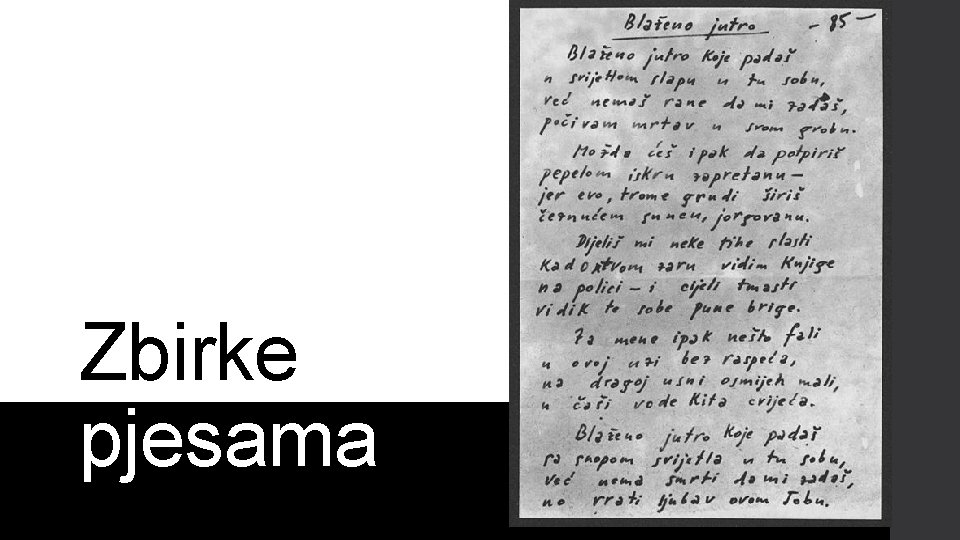 Zbirke
pjesama
Blaženo jutro - 85 -
Blaženo jutro koje padaš
u svijetlom slapu u tu sobu,
već nemaš rane da mi zadaš,
počivam mrtav u svom grobu.
Možda ćeš ipak da potpiriš
pepelom iskru zapretanu —
jer evo, trome grudi širiš
čeznućem suncu, jorgovanu.
Dijeliš mi neke tihe slasti
kad o tvom žaru vidim knjige
na polici — i cijeli tmasti
vidik te sobe pune brige.
Za mene ipak nešto fali
u ovoj uzi bez raspeća,
na dragoj usni osmijeh mali,
u čaši vode kita cvijeća.
Blaženo jutro koje padaš
sa snopom svijetla u tu sobu,
već nema smrti da mi zadaš,
no vrati ljubav ovom